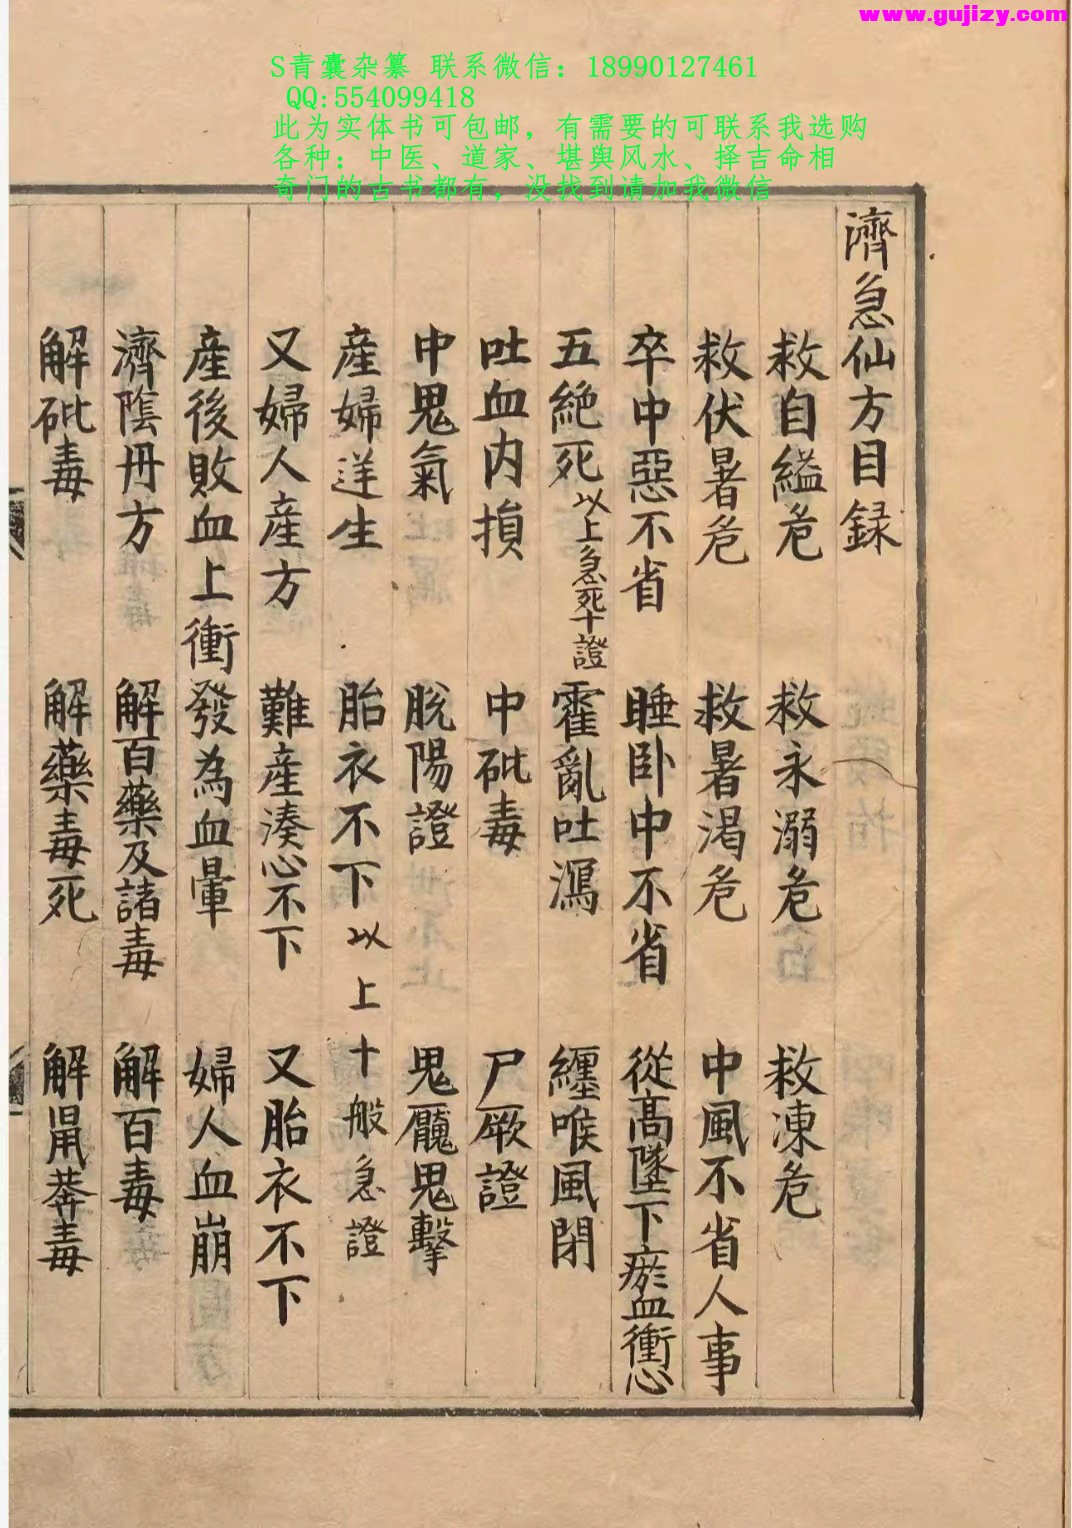 www.gujizy.com
S青囊杂纂 联系微信：18990127461
QQ:554099418
此为实体书可包邮，有需要的可联系我选购
各种：中医、道家、堪舆风水、择吉命相
奇门的古书都有，没找到请加我微信
濟急仙方目録
救自縊危 救永溺危 救凍危
救伏暑危 救暑渇危 中風不省人事
卒中惡不省 睡卧中不省 從高墜下瘀血衝心
五絶死以上急死十證 霍亂吐瀉 纏喉風閉
吐血内損 中砒毒 尸厥證
中鬼氣 脫陽證 鬼魘鬼擊
産婦逆生 胎衣不下以上十般急證
又婦人産方 難産湊心不下 又胎衣不下
産後敗血上衝 發為血暈 婦人血崩
濟陰丹方 解百藥及諸毒 解百毒
解砒毒 解藥毒死 解鼠莽毒